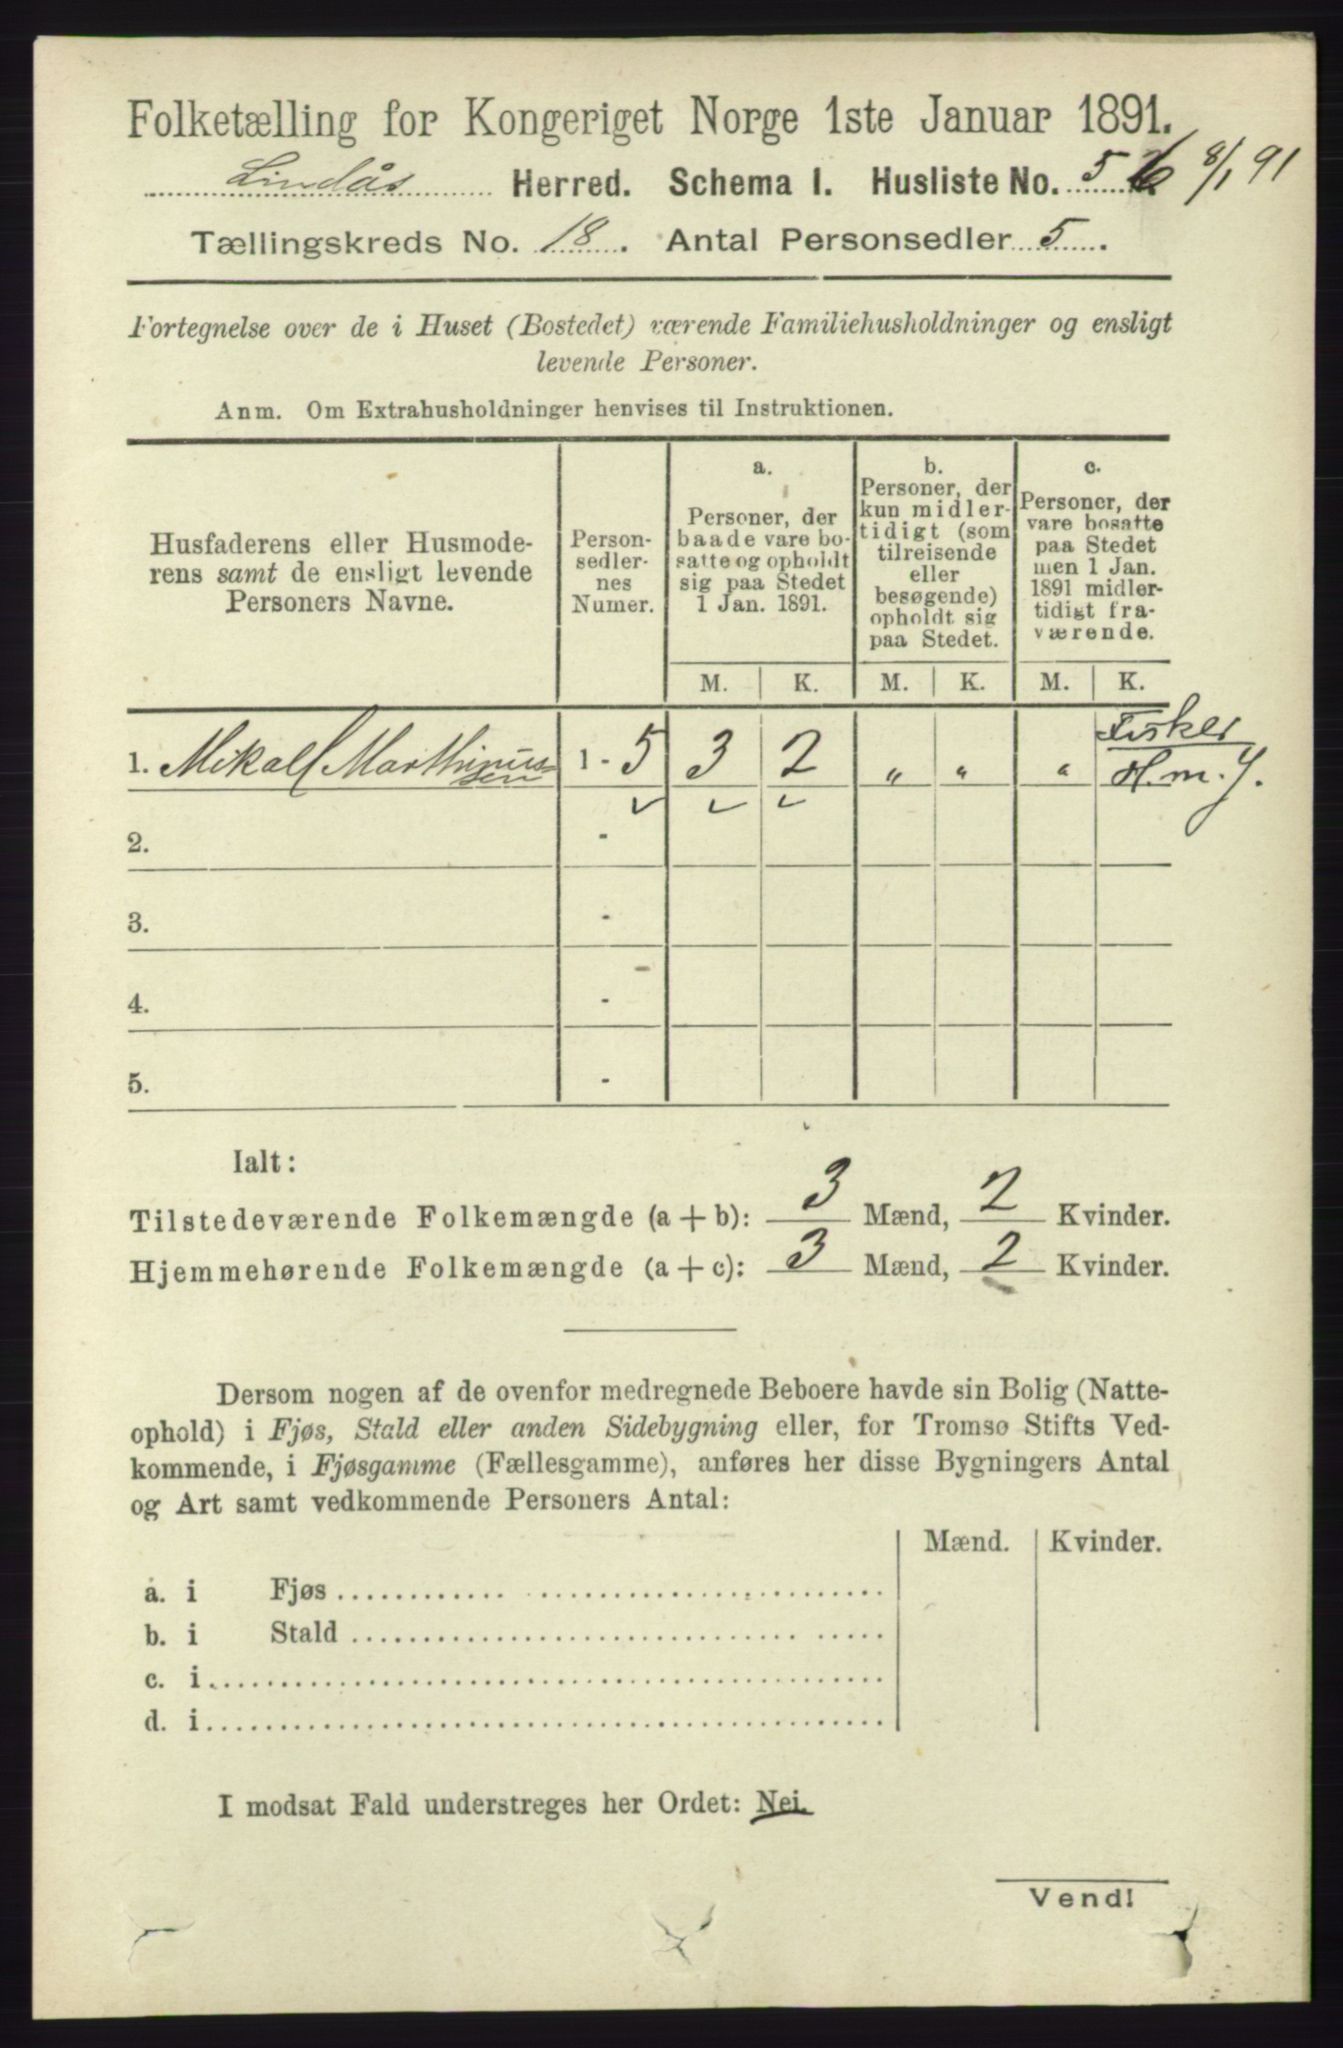 Folketælling for Kongeriget Norge 1ste Januar 1891.
Lindås Herred. Schema I. Husliste No. 56 8/1 91
Tællingskreds No. 18. Antal Personsedler 5.
Fortegnelse over de i Huset (Bostedet) værende Familiehusholdninger og ensligt
levende Personer.
Anm. Om Extrahusholdninger henvises til Instruktionen.
Husfaderens eller Husmode-
rens samt de ensligt levende
Personers Navne.
Person-
sedler-
nes
Numer.
a.
Personer, der
baade vare bo-
satte og opholdt
sig paa Stedet
1 Jan. 1891.
b.
Personer, der
kun midler-
tidigt (som
tilreisende
eller
besøgende)
opholdt sig
paa Stedet.
c.
Personer, der
vare bosatte
paa Stedet
men 1 Jan.
1891 midler-
tidigt fra-
værende.
M. K. M. K. M. K.
1. Mikal Marthinus-
sen 1 - 5 3 2 " " " Fisker
H. m. J.
2. -
3. -
4. -
5. -
Ialt:
Tilstedeværende Folkemængde (a + b): 3 Mænd, 2 Kvinder.
Hjemmehørende Folkemængde (a + c): 3 Mænd, 2 Kvinder.
Dersom nogen af de ovenfor medregnede Beboere havde sin Bolig (Natte-
ophold) i Fjøs, Stald eller anden Sidebygning eller, for Tromsø Stifts Ved-
kommende, i Fjøsgamme (Fællesgamme), anføres her disse Bygningers Antal
og Art samt vedkommende Personers Antal:
Mænd. Kvinder.
a. i Fjøs
b. i Stald
c. i
d. i
I modsat Fald understreges her Ordet: Nei.
Vend!